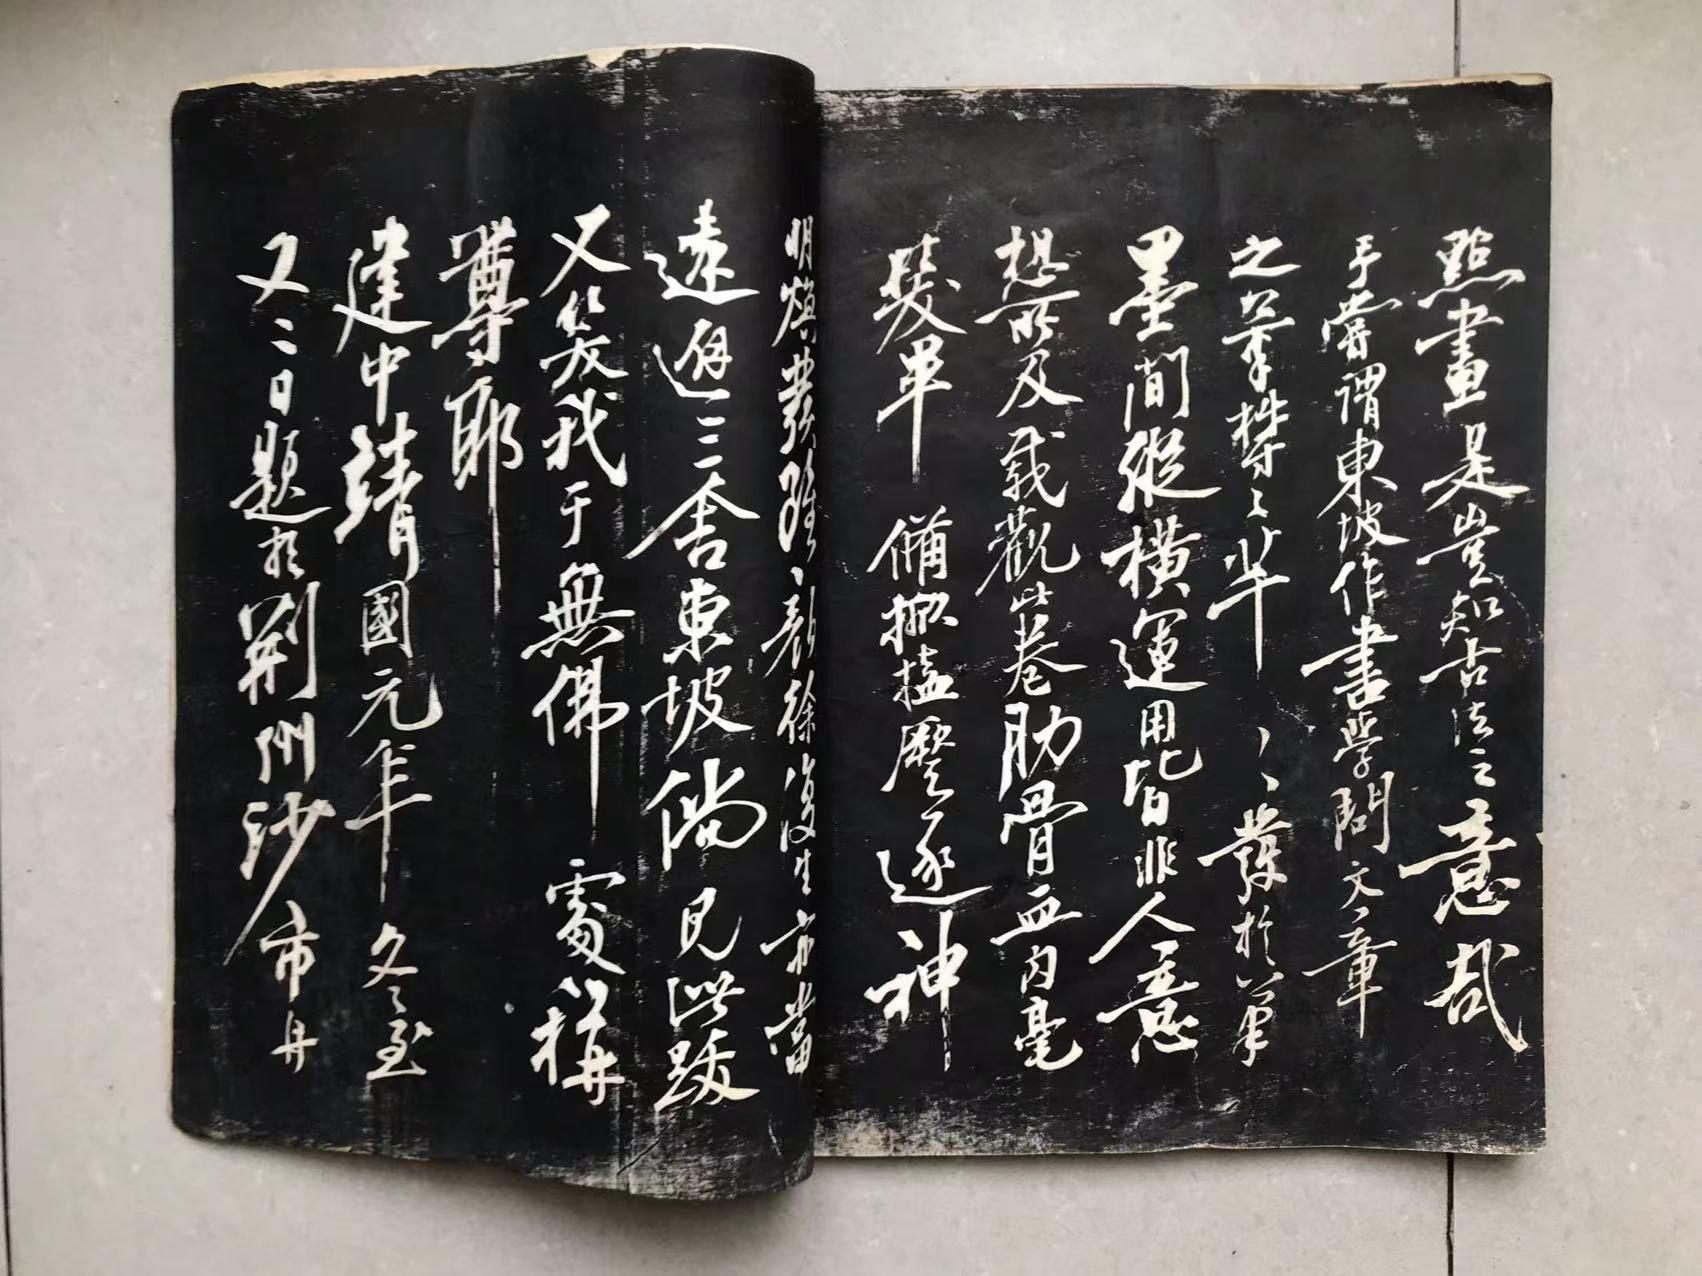 點畫是豈知古法之意哉
予嘗謂東坡作書學問文章
之氣欝〻芊〻發於筆
墨間縱橫運用皆非人意
想所及載觀此卷肋骨血肉毫
髮畢備搕壓逐神
明煥發雖顏徐復生亦當
遠避三舍東坡倘見此跋
又笑我于無佛處稱
尊耶
建中靖國元年冬至
又二日題於荊州沙市舟